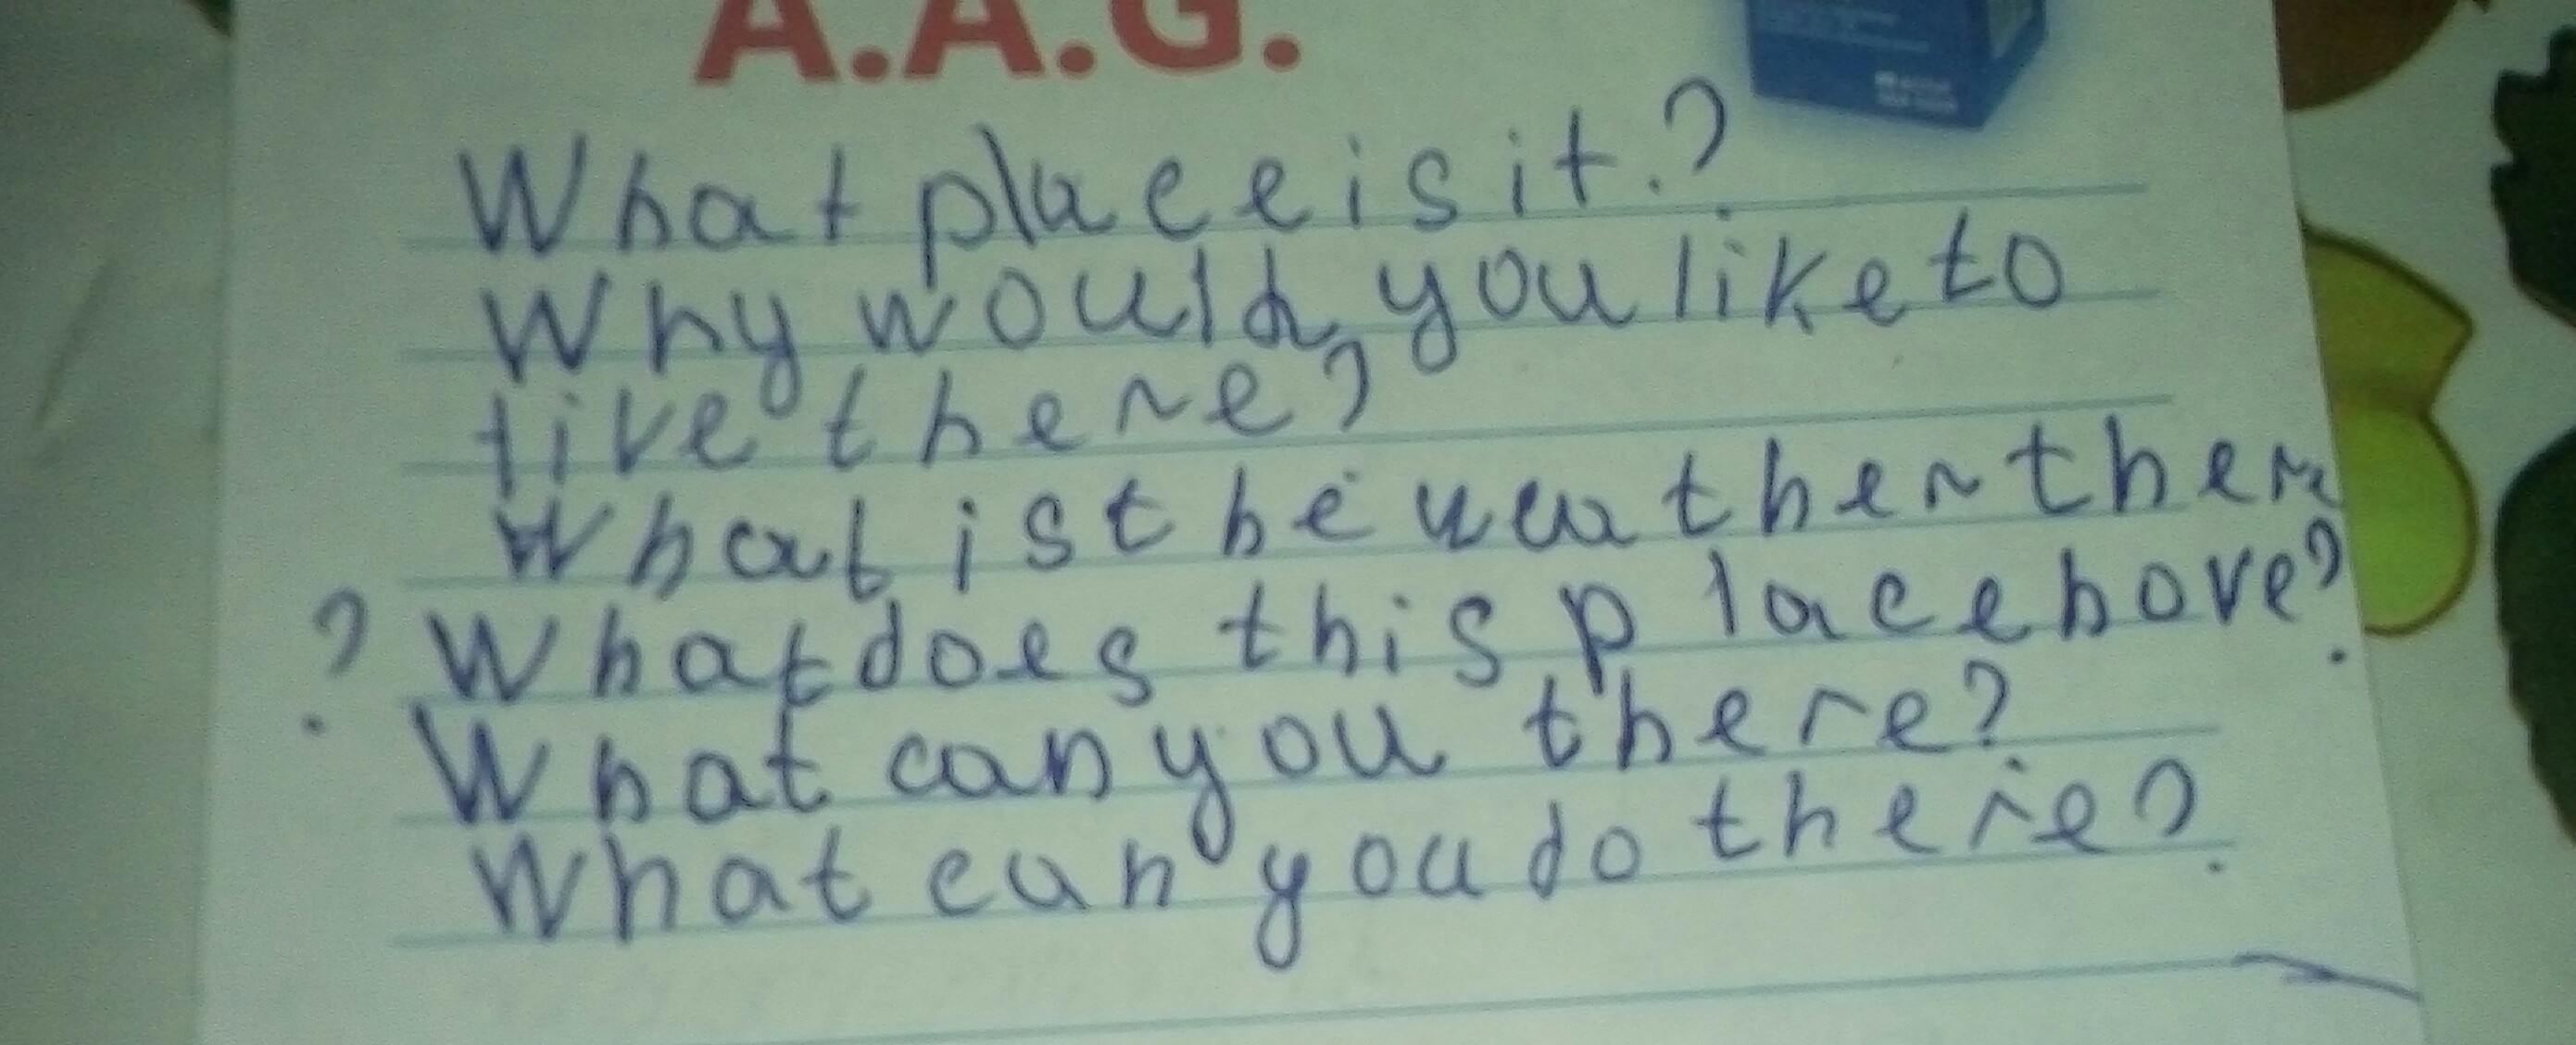 A.A.G.
What place is it.?
Why would you like to
live there?
What is the weather there
? What does this place have?
What can you there?
What can you do there?